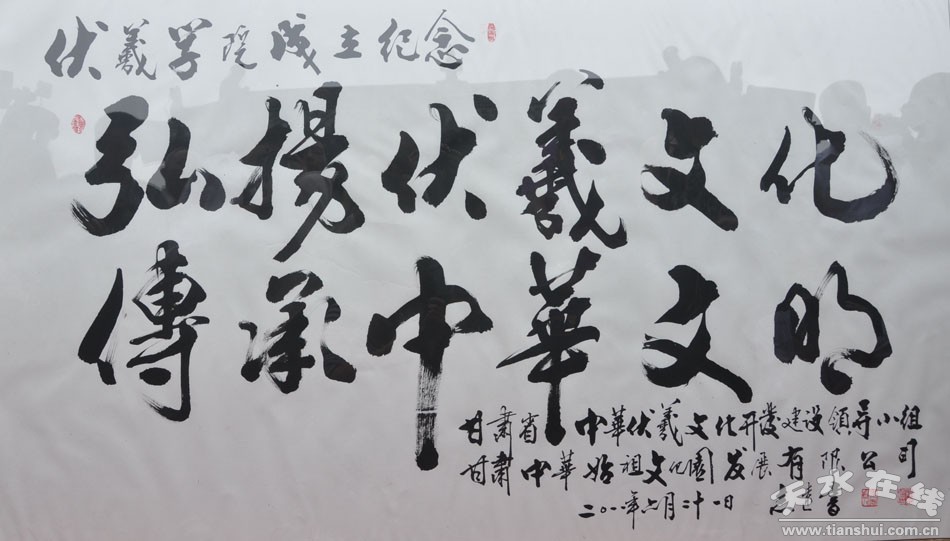 伏羲学院成立纪念
弘揚伏羲文化
傳承中華文明
甘肃省 中華伏羲文化开發建设領导小组
甘肃中华始祖文化園发展有限公司
二〇一一年六月二十一日
天水在线
www.tianshui.com.cn